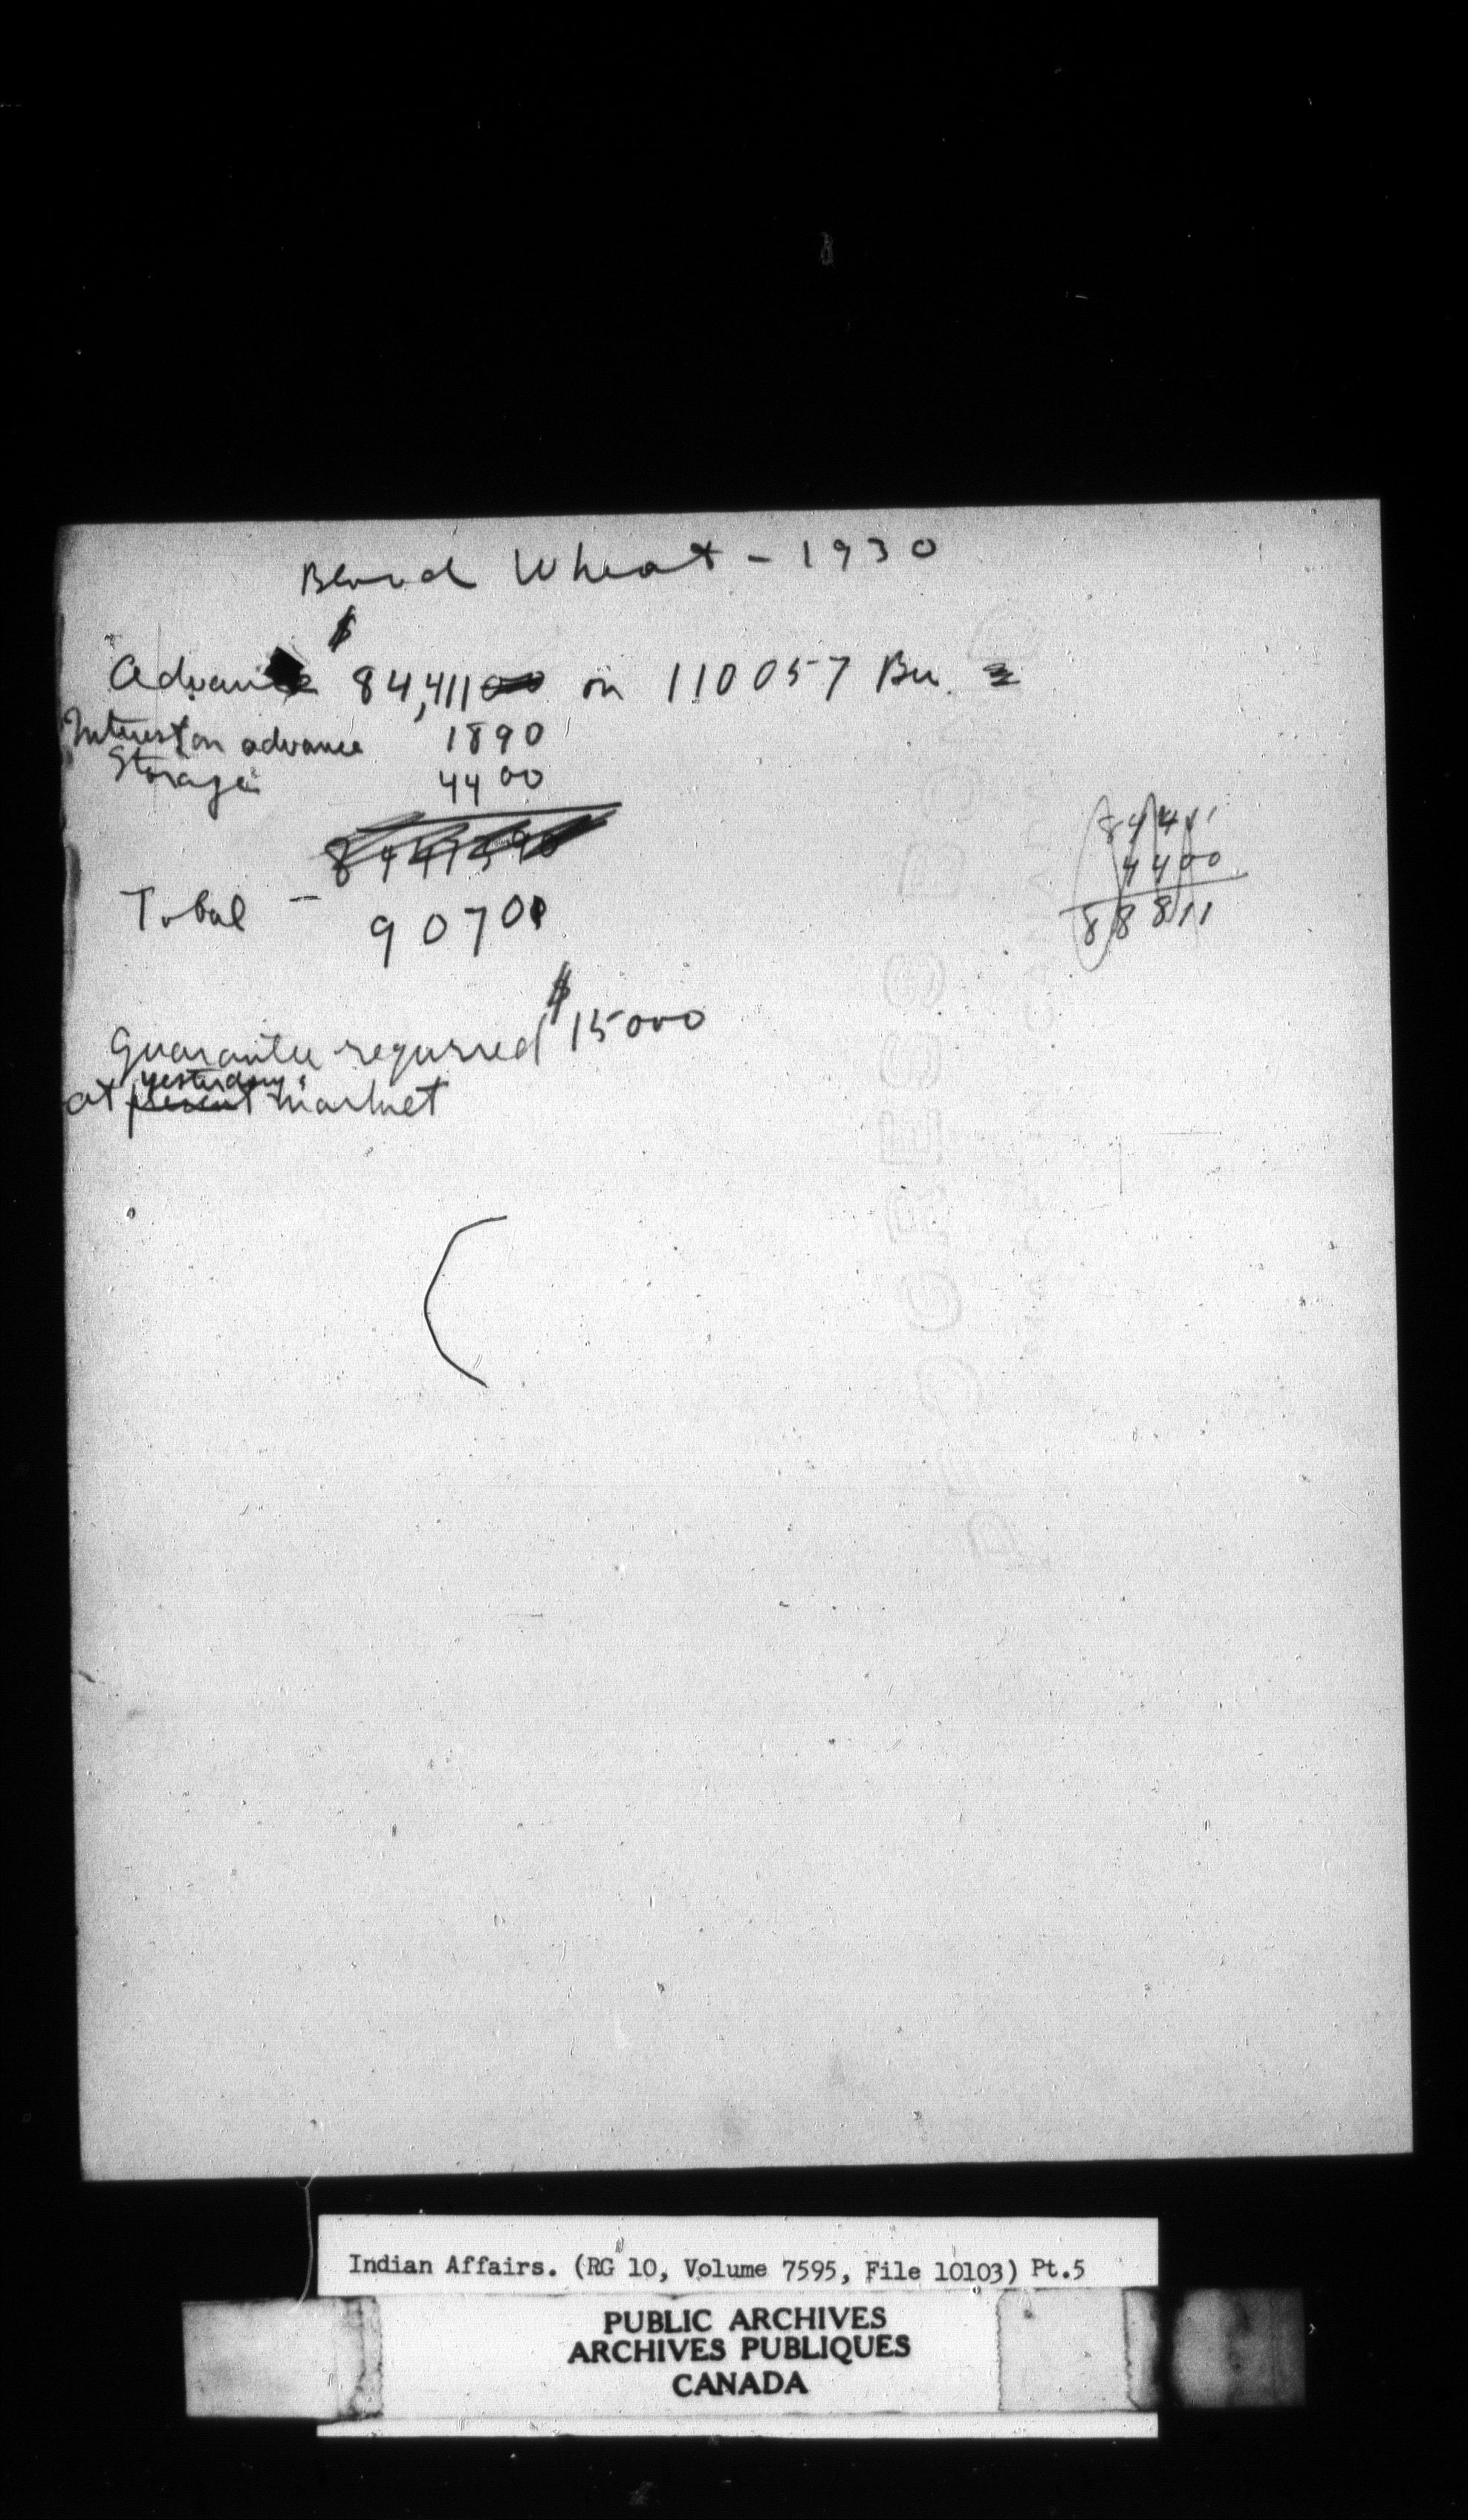 Blood Wheat - 1930
$
Advance 84,411 on 110057 Bu.
Interest on advance 1890
Storage 4400
84411
4400
88811
Total - 90701
Guarantee required $15000
yesterday's
at present market
Indian Affairs. (RG 10, Volume 7595, File 10103) Pt.5
PUBLIC ARCHIVES
ARCHIVES PUBLIQUES
CANADA